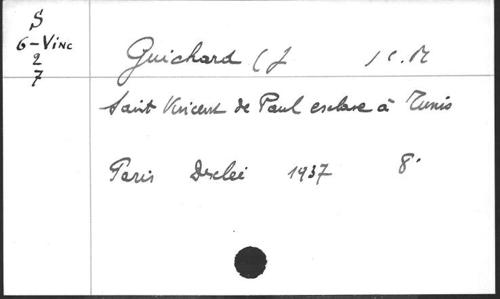 S
6-Vinc
2
7
Guichard (J C.M
Saint Vincent de Paul esclave à Tunis
Paris Desclée 1937 8°